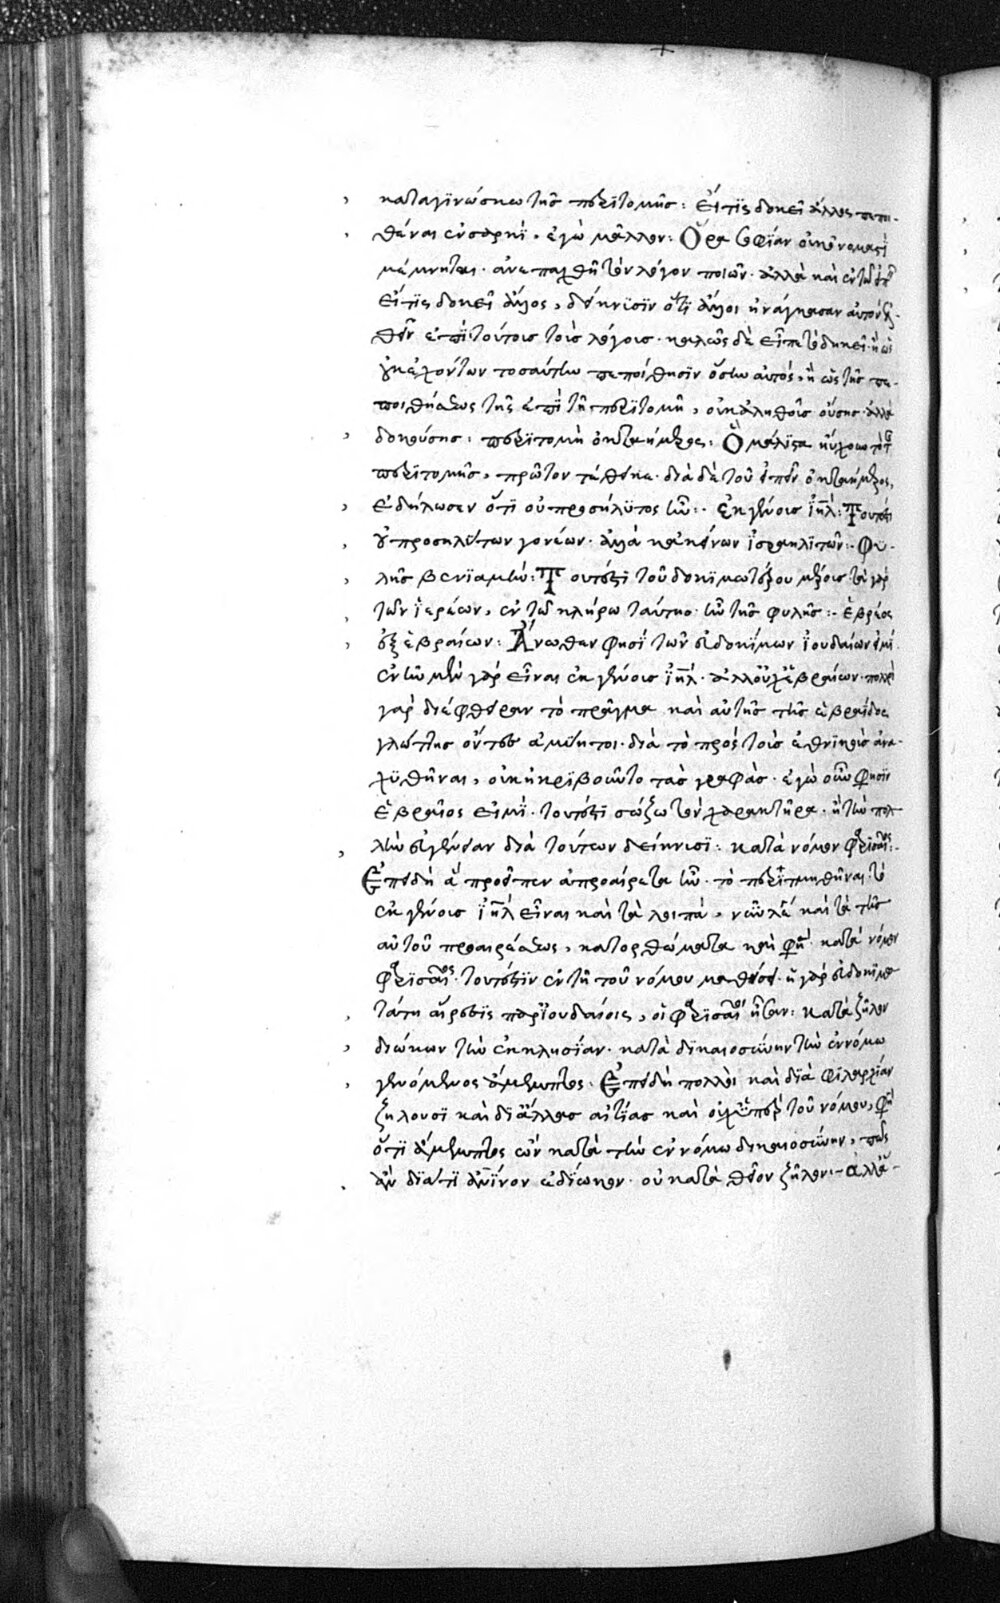 καταγϊνώσκω τῆς περϊτομῆς: Εἴ τϊς δοκεῖ ἄλλος πεποι-
θέναι ἐν σαρκὶ, ἐγὼ μᾶλλον: Ὅρα σοφίαν
μέμνηται· ἀνεπαχθῆ τὸν λόγον ποιῶν· ἀλλὰ καὶ ἐν τῶ εἰπεῖν
εἴ τϊς δοκεῖ ἄλλος, δείκνϋσϊν ὅτϊ ἄλλοι ἠνάγκασαν αὐτὸν ἐλ-
θεῖν ἐπὶ τούτοις τοῖς λόγοις· καλῶς δὲ εἶπε τὸ δοκεῖ· ἢ ὡς
ἐχόντων τοσαύτην πεποίθησϊν ὅσην αὐτός, ἢ ὡς τῆς πε-
ποιθήσεως τῆς ἐπὶ τῆ περϊτομῆ, οὐκ ἀληθοῦς οὔσης ἀλλὰ
δοκούσης: περϊτομῆ ὀκταήμερος: Ὃ μάλϊστα ηὔχουν
περϊτομῆς, πρῶτον τέθεικε· διὰ δὲ τοῦ εἰπεῖν ὀκταήμερος,
ἐδήλωσεν ὅτϊ οὐ προσήλϋτος ἦν: ἐκ γένους ἰηλ: Τουτέστϊ
οὐ προσηλύτων γονέων· ἀλλὰ κἀκείνων ἰσραηλιτῶν: Φϋ-
λῆς βενϊαμΐν: Τουτέστϊ τοῦ δοκϊμωτέρου μέρους· τὰ γὰρ
τῶν ἱερέων, ἐν τῶ κλήρω ταύτης ἦν τῆς φυλῆς: ἑβραῖος
ἐξ ἑβραίων: Ἄνωθεν φησὶ τῶν εὐδοκίμων ἰουδαίων εἰμί·
ἐνῆν μὲν γὰρ εἶναι ἐκ γένους ἰηλ· ἀλλ' οὐχ ἐξ ἑβραίων· πολλοὶ
γὰρ διέφθειραν τὸ πρᾶγμα καὶ αὐτῆς τῆς ἑβραΐδος
γλώττης οὔτε ἀμύητοι· διὰ τὸ πρὸς τοῖς ἐθνϊκοῖς ἀνα-
χϋθῆναι, οὐκ ἠκρϊβοῦντο τὰς γραφάς· ἐγὼ οὖν φησϊν
ἑβραῖος εἰμὶ· τουτέστϊ σώζω τὸν χαρακτῆρα· ἢ τὴν πολ-
λὴν εὐγένειαν διὰ τούτων δείκνυσϊ: κατὰ νόμον φαρϊσαῖος:
Ἐπειδὴ ἃ προεῖπεν ἀπροαίρετα ἦν· τὸ περϊτμηθῆναι· τὸ
ἐκ γένους ἰηλ εἶναι καὶ τὰ λοιπά, νῦν λέγει καὶ τὰ τῆς
αὐτοῦ προαιρέσεως, κατορθώματα καὶ φησὶ· κατὰ νόμον
φαρϊσαῖος· τουτέστϊν ἐν τῆ τοῦ νόμου μαθήσει· ἡ γὰρ εὐδοκϊμω
τάτη αἵρεσϊς παρ' ἰουδαίοις, οἱ φαρϊσαῖοι ἦσαν: κατὰ ζῆλον
διώκων τὴν ἐκκλησίαν· κατὰ δϊκαιοσύνην τὴν ἐν νόμω
γενόμενος ἄμεμπτος. Ἐπειδὴ πολλοὶ καὶ διὰ φιλαρχίαν
ζηλοῦσϊ καὶ δϊ' ἄλλας αἰτίας καὶ οὐχ ὑπὲρ τοῦ νόμου, φησὶν
ὅτϊ ἄμεμπτος ὢν κατὰ τὴν ἐν νόμω δικαιοσύνην, πῶς
ἂν διατϊ ἐδίωκον· οὐ κατὰ θεῖον ζῆλον· ἀλλ'